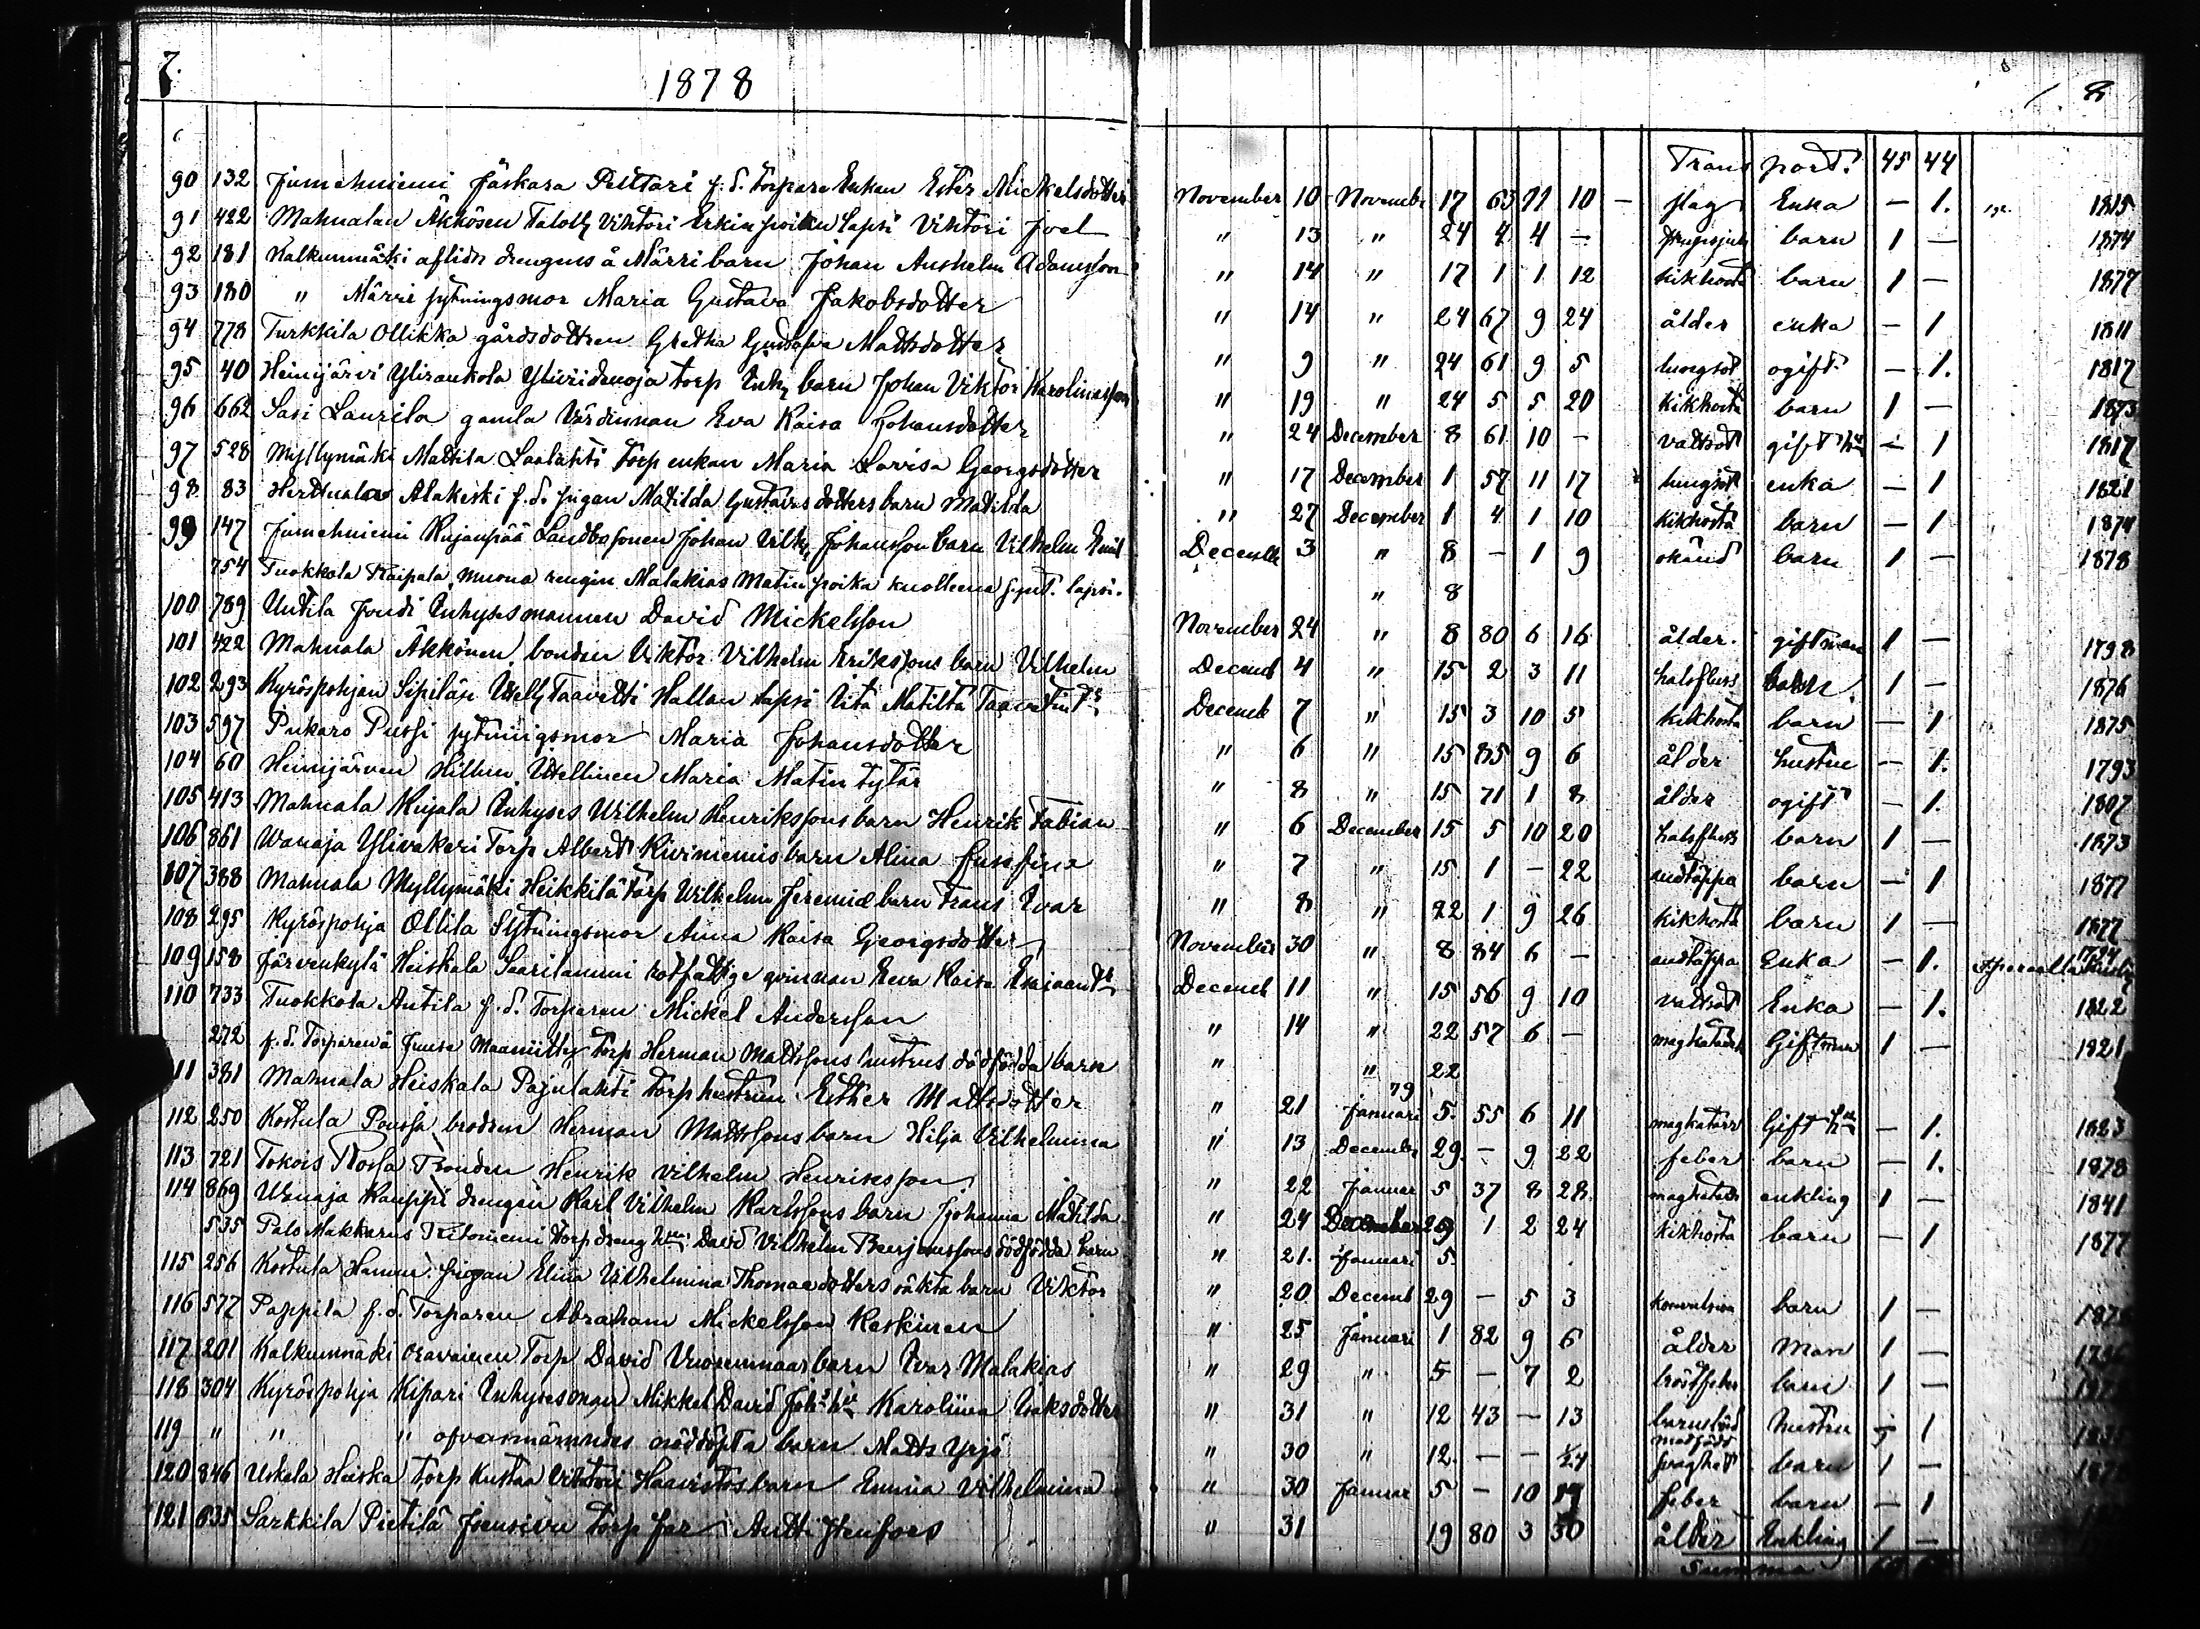 7.
1878
8
Transport 45 44
90 132 Jumehniemi Jaskara Pelttari f. d. Torpare Enkan Ester Mickelsdotter November 10 November 17 63 11 10 – slag Enka – 1. 1815
91 422 Mahnalan Äkkösen Talolls Vihtori Erkin pojan Lapsi Vihtori Joel " 13 " 24 4 4 – barn 1 – 1874
92 181 Kalkunmäki aflidn drengens å Märri barn Johan Anshelm Adamsson " 14 " 17 1 1 12 kikhosta barn 1 – 1877
93 180 " Märri sytningsmor Maria Gustava Jakobsdotter " 14 " 24 67 9 24 ålder enka – 1 1811
94 778 Turkkila Ollikka gårdsdottren Gretha Gustava Mattsdotter " 9 " 24 61 9 5 lungsot ogift – 1. 1817
95 40 Heinijärvi Ylirankola torp Enk barn Johan Viktor Karolinasson " 19 " 24 5 5 20 kikhosta barn 1 – 1873
96 662 Sasi Laurila gamla Värdinnan Eva Kaisa Johansdotter " 24 December 8 61 10 – vattsot gift – 1 1817
97 528 Myllymäki Mattila Laalahti Torp enkan Maria Lovisa Georgsdotter " 17 December 1 57 11 17 lungsot enka – 1 1821
98 83 Herttuala Alakeski f. d. pigan Matilda Gustavsdotters barn Matilda " 27 December 1 4 1 10 kikhosta barn – 1 1874
99 147 Jumehniemi Kujanpää Landbosonen Johan Vilh Johansson barn Vilhelm Emil December 3 " 8 – 1 9 okänd barn 1 – 1878
754 Tuokkola Raipala muona rengin Malakias Matin poika kuolleena synt. lapsi. " 8
100 789 Untila Jondi Inhysesmannen David Mickelsson November 24 " 8 80 6 16 ålder gift man 1 – 1798
101 422 Mahnala Äkkönen bonden Viktor Vilhelm Erikssons barn Vilhelm Decemb 4 " 15 2 3 11 halsfluss barn 1 – 1876
102 293 Kyröspohjan Sipilän Itsell Taavetti Hallan lapsi Iita Matilta Taavetint Decemb 7 " 15 3 10 5 kikhosta barn – 1 1875
103 597 Pukaro Pussi sytningsmor Maria Johansdotter " 6 " 15 85 9 6 ålder hustru – 1. 1793
104 60 Heinijärven Itsellinen Maria Matin tytär " 8 " 15 71 1 8 ålder ogift – 1. 1807
105 413 Mahnala Kujala Inhyses Wilhelm Henrikssons barn Henrik Fabian " 6 December 15 5 10 20 halsfluss barn 1 – 1873
106 861 Wanaja Ylivakeri Torp Albert Kiviniemis barn Alina Jusefina " 7 " 15 1 – 22 andtäppa barn – 1 1877
107 388 Mahnala Myllymäki Heikkilä Torp Wilhelm Jeremiæ barn Frans Ivar " 8 " 22 1 9 26 kikhosta barn 1 – 1877
108 295 Kyröspohja Ollila Sytningsmor Anna Kaisa Georgsdotter November 30 " 8 84 6 – andtäppa Enka – 1. 1794
109 158 Järvenkylä Heiskala Saarilammi rotfattige qvinnan Eeva Kaisa Esajaandr Decemb 11 " 15 56 9 10 vattsot Enka – 1. 1822
110 733 Tuokkola Antila f. d. Torparen Mickel Andersson " 14 " 22 57 6 – magkatarr Gift man 1 – 1821
272 f. d. Torparen å Juusa Maaniitty Torp Herman Mattssons hustrus dödfödda barn " " 22
111 381 Mahnala Heiskala Pajulahti Torp hustrun Esther Mattsdotter " 21 Januari 79 5. 55 6 11 magkatarr Gift – 1. 1823
112 250 Kostula Poussa brodren Herman Mattssons barn Hilja Vilhelmina " 13 December 29. – 9 22 feber barn – 1. 1878
113 721 Tokois Rossa Bonden Henrik Vilhelm Henriksson " 22 Januar 5 37 8 28 magkatarr enkling 1 – 1841
114 869 Wanaja Kauppi drengen Karl Vilhelm Karlssons barn Johanna Matilda " 24 December 29 1 2 24 kikhosta barn – 1 1877
535 Palo Makkarus Ritoniemi Torp dreng David Vilhelm Benjaminssons dödfödda barn " 21. Januari 5
115 256 Kostula Hannu pigan Elina Vilhelmina Thomaedotters oäkta barn Viktor " 20 Decemb 29 – 5 3 konvulsion barn 1 –
116 577 Pappila f. d. Torparen Abraham Mickelsson Keskinen " 25 Januari 1 82 9 6 ålder Man 1 – 1796
117 201 Kalkunmäki Oravainen Torp David Vuorenmaas barn Ivar Malakias " 29 " 5 – 7 2 barn 1 –
118 304 Kyröspohja Kipari Inhysesman Mikkel David Joh Karoliina Isaksdotter " 31 " 12 43 – 13 barnsbörd hustru – 1
119 " " " ofvannämndes nöddöpta barn Matts Yrjö " 30 " 12. – – 1/24 svaghet barn 1 –
120 846 Uskala Heiska Torp Kustaa Vihtori Haavistos barn Emina Vilhelmina " 30 Januar 5 – 10 19 feber barn – 1
121 635 Sarkkila Pietilä Torp far Antti Stenfors " 31 19 80 3 30 ålder Enkling 1 –
Summa